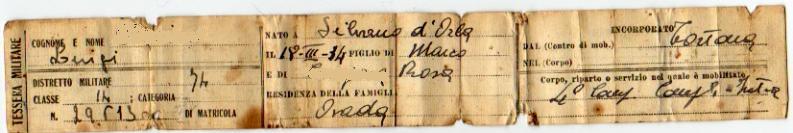 TESSERA MILITARE
COGNOME E NOME
Luigi
DISTRETTO MILITARE 74
CLASSE 14 ; CATEGORIA
N. DI MATRICOLA
NATO A Silvano d'Orba
IL 18-III-34 FIGLIO DI Marco
E DI Rosa
RESIDENZA DELLA FAMIGLI
Ovada
INCORPORATO
DAL (Centro di mob.) Tortona
NEL (Corpo)
Corpo, riparto o servizio nel quale è mobilitato